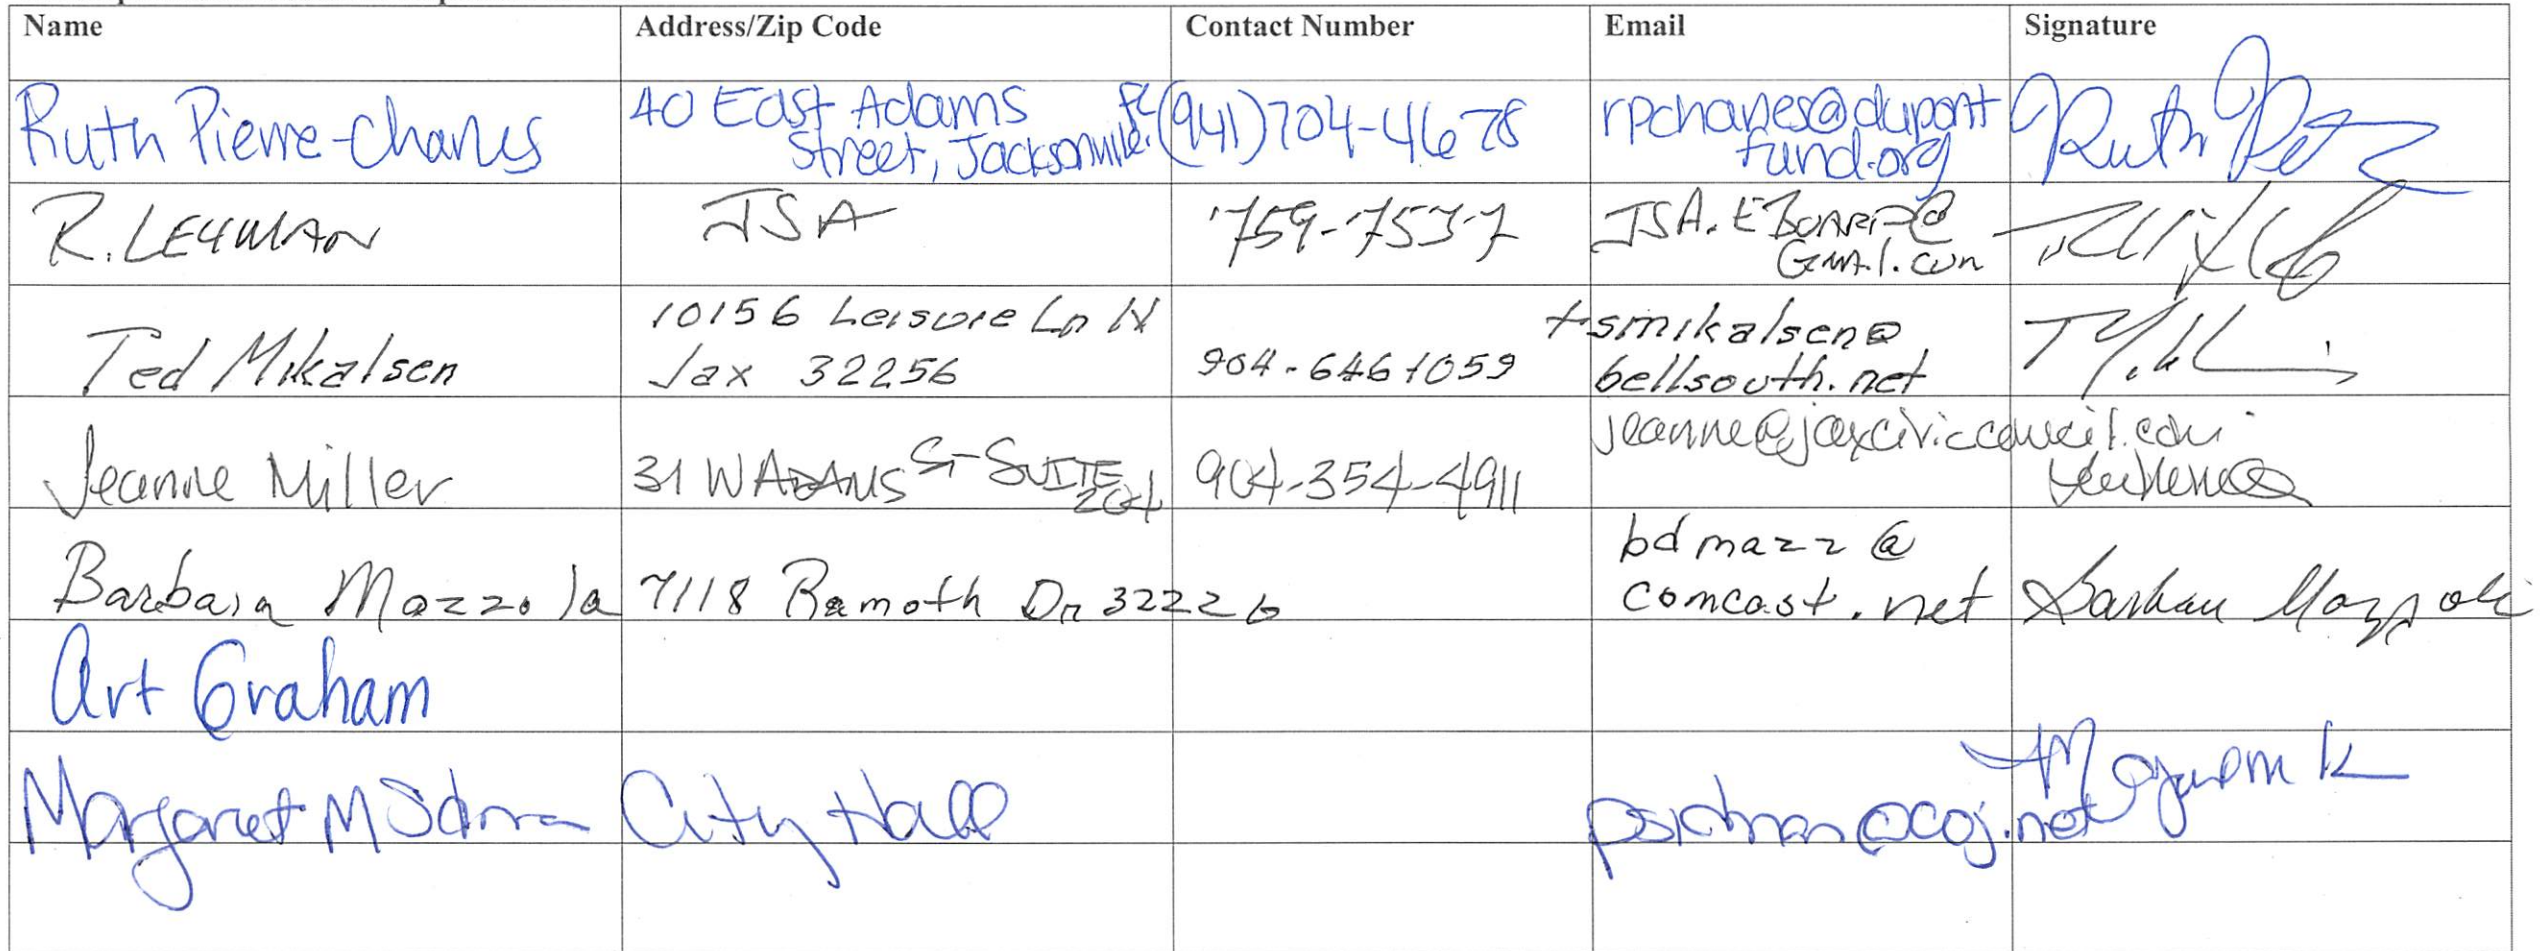 Name Address/Zip Code Contact Number Email Signature
Ruth Pierre-Charles 40 East Adams Street, Jacksonville, FL (941)704-4678 rpcharles@dupontfund.org
R. LEHMAN JSA 759-7537 JSA.EBOARD@Gmail.com
Ted Mikalsen 10156 Leisure Ln N Jax 32256 904-6461059 tsmikalsen@bellsouth.net
Jeanne Miller 31 W ADAMS ST SUITE 204 904-354-4911 jeanne@jaxciviccouncil.com
Barbara Mazzola 7118 Ramoth Dr 32226 bdmazz@comcast.net Barbara Mazzola
Art Graham
Margaret M City Hall @coj.net